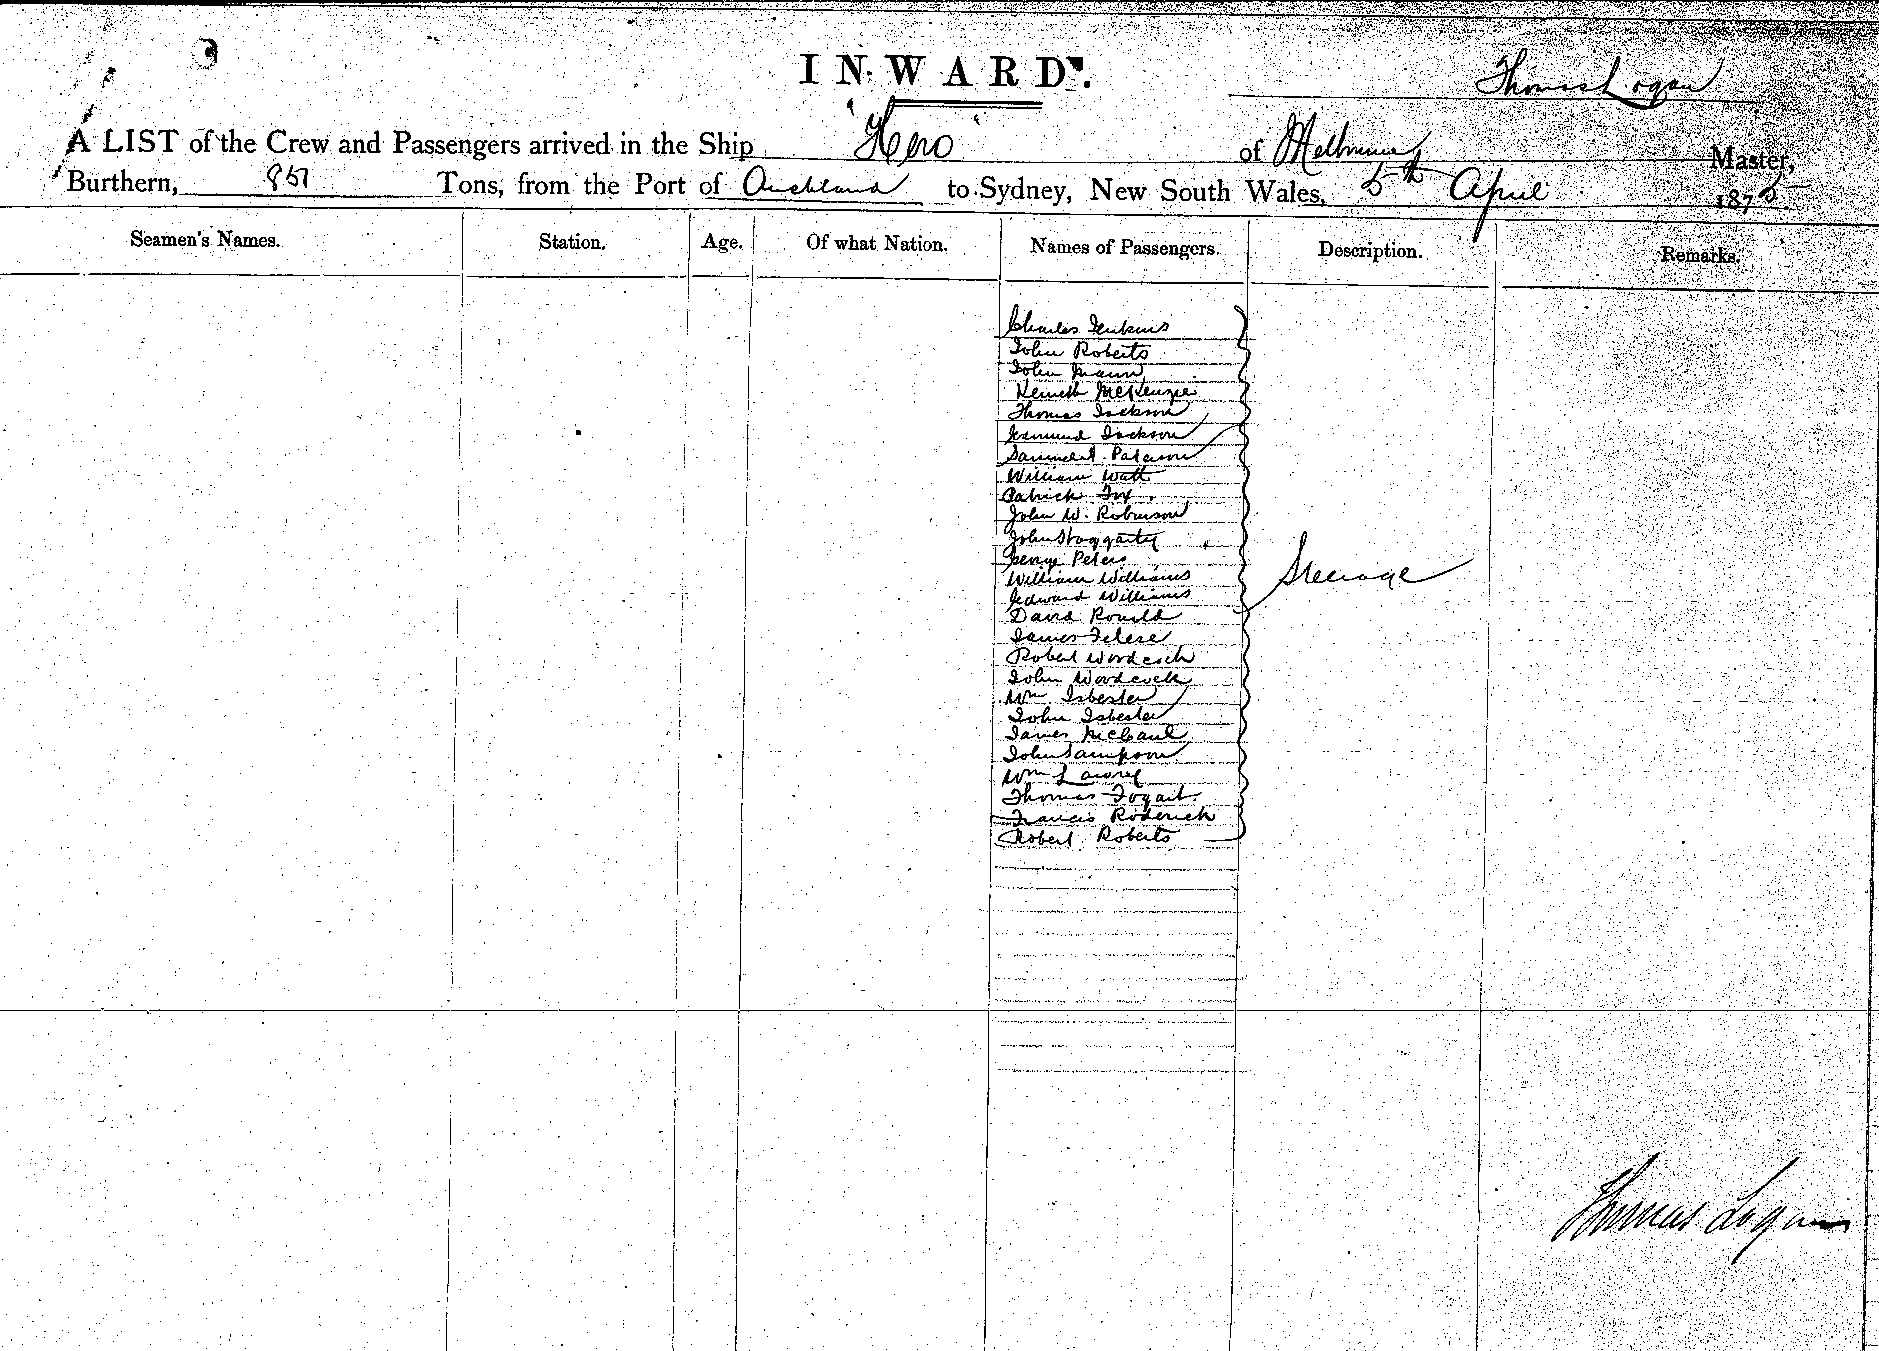 INWARD.
Thomas Logan
A LIST of the Crew and Passengers arrived in the Ship "Hero" of Melbourne Master,
Burthern, Tons, from the Port of Auckland to Sydney, New South Wales, 5th April 1875
Seamen's Names. Station. Age. Of what Nation. Names of Passengers. Description. Remarks.
Charles Jenkins
John Roberts
John Mann
Kenneth McKenzie
Thomas Jackson
Edmund Jackson
Paterson
William Watt
Patrick Fox
John W. Robinson
John Hoggarty
George Peters
Steerage
William Williams
Edward Williams
David Ronald
James
Robert Woodcock
John Woodcock
Wm Isbester
John Isbester
James McCaul
John Sampson
Wm Lawry
Thomas
Francis Roderick
Robert Roberts
Thomas Logan